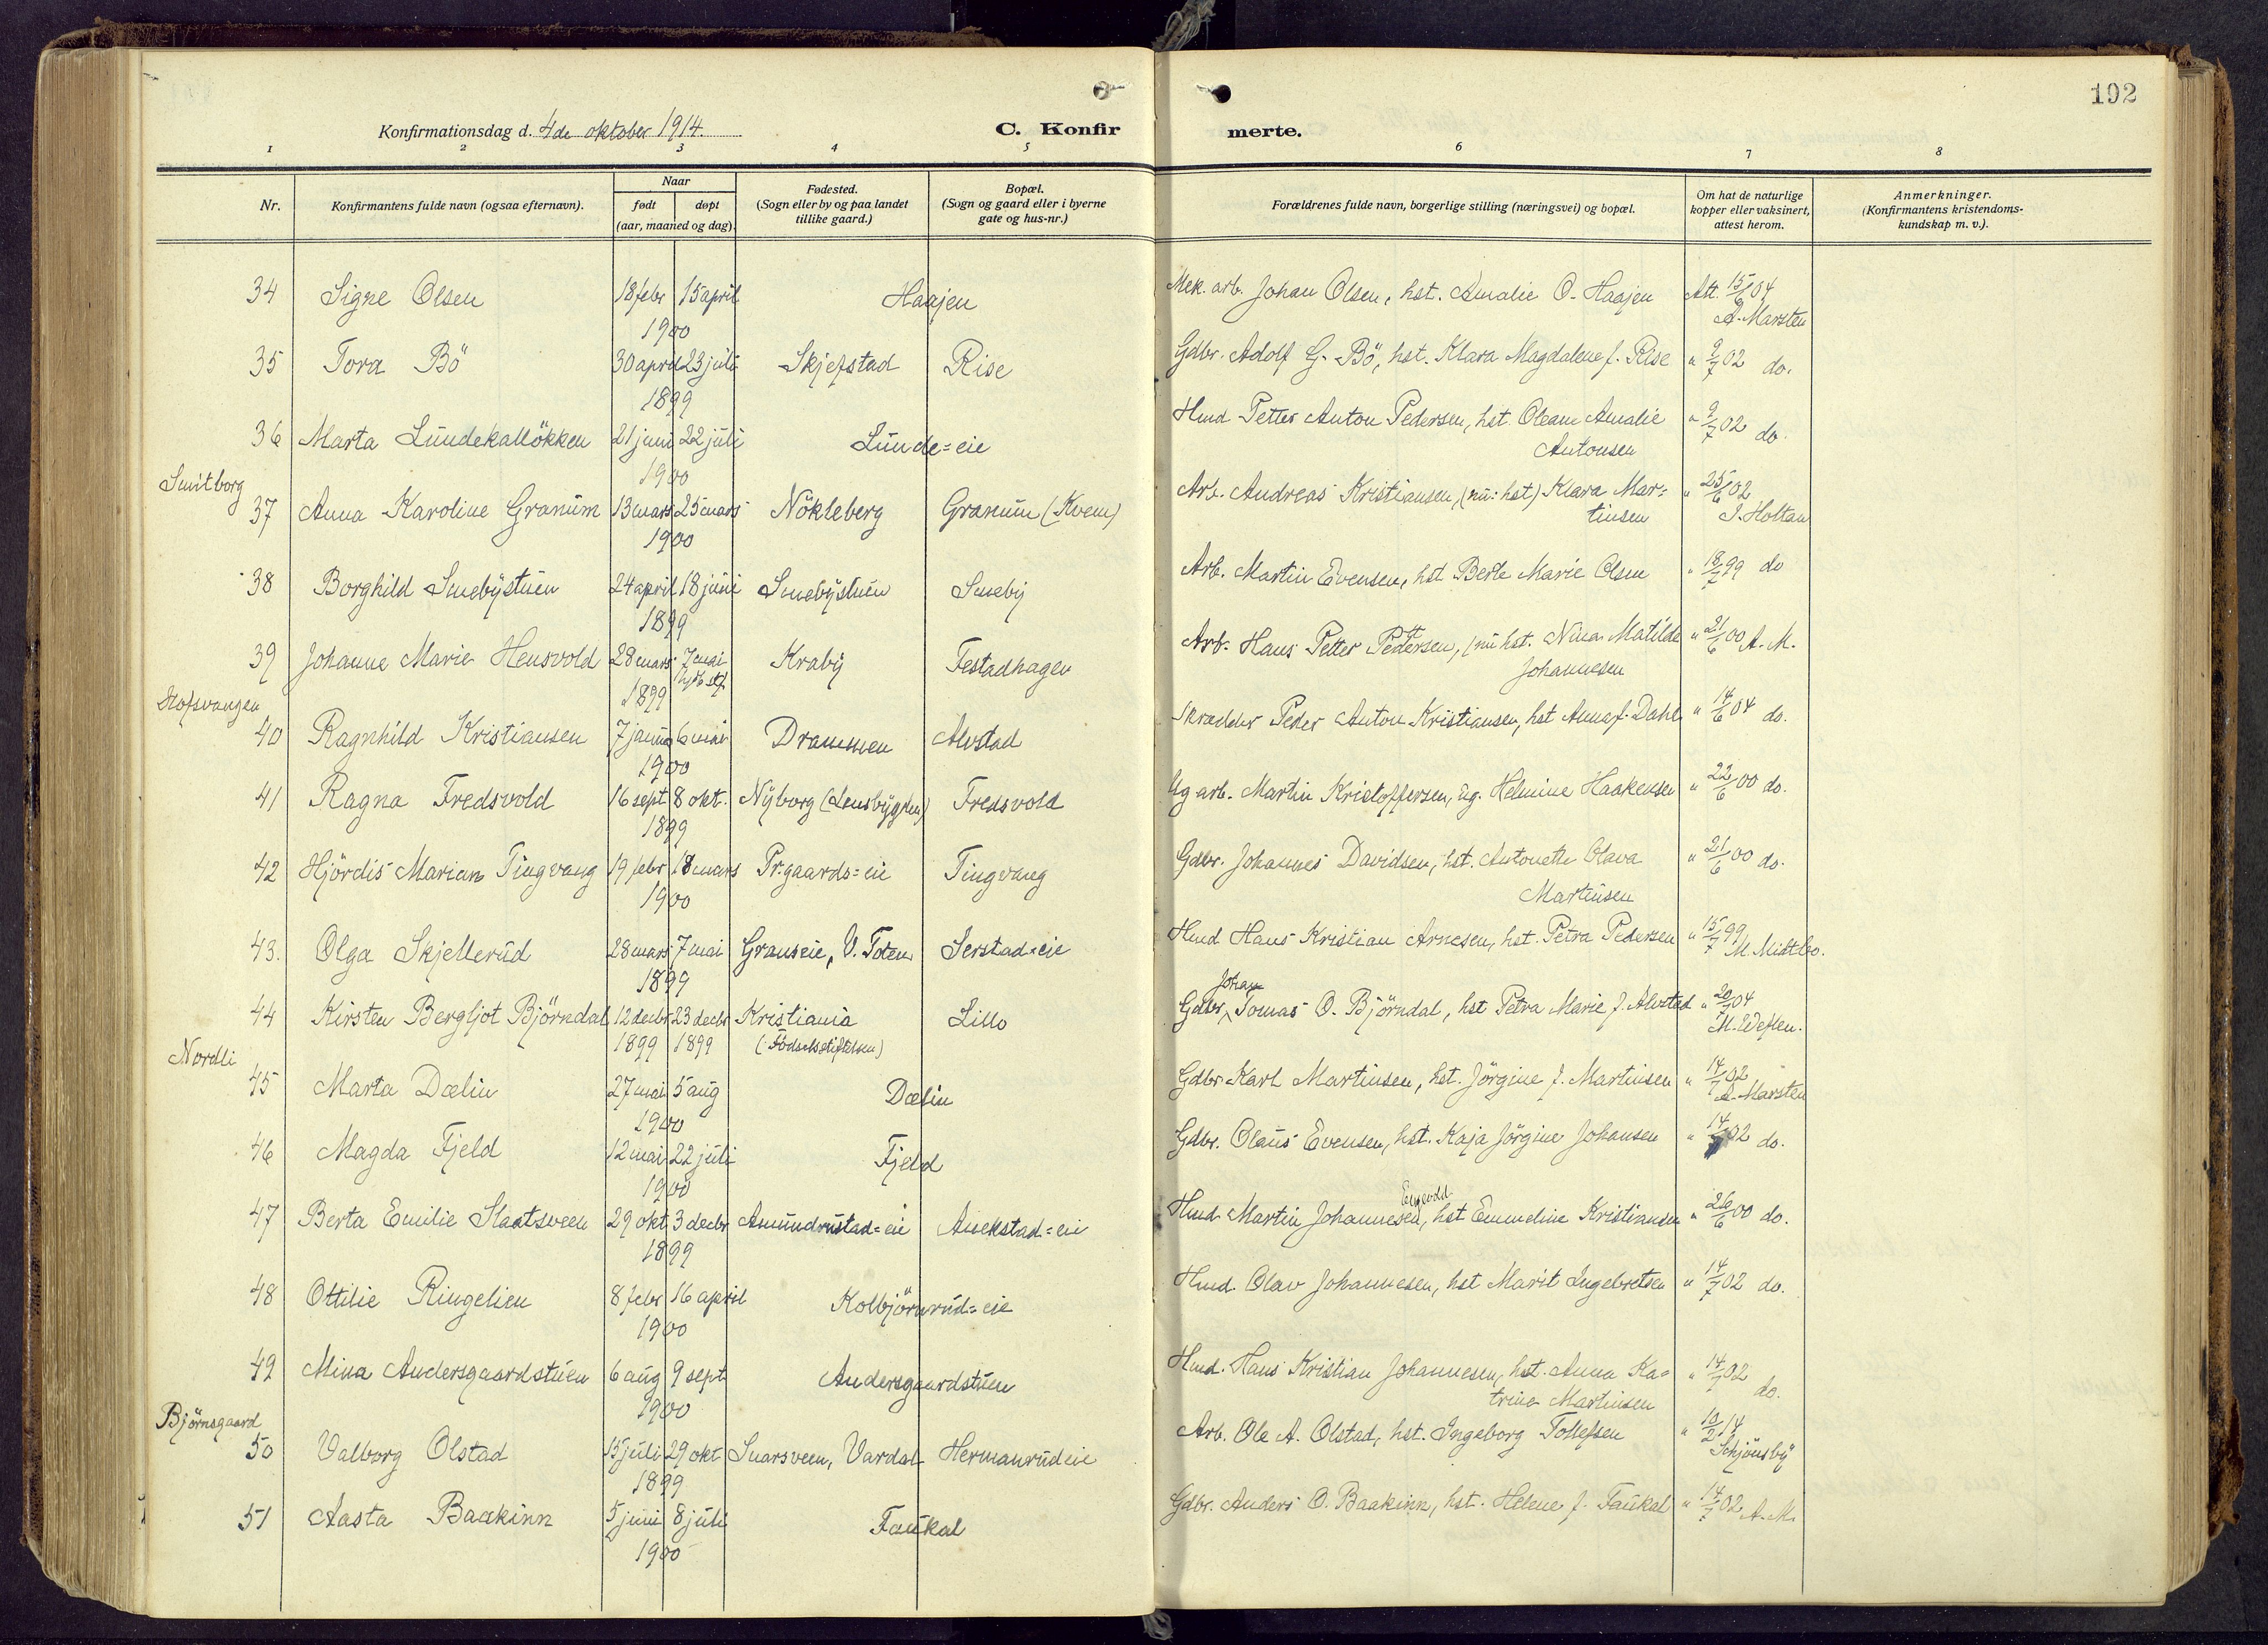 192
Konfirmationsdag d. 4de oktober 1914.
C. Konfirmerte.
1 2 3 4 5 6 7 8
Nr. Konfirmantens fulde navn (ogsaa efternavn). Naar født døpt (aar, maaned og dag). Fødested. (Sogn eller by og paa landet tillike gaard.) Bopæl. (Sogn og gaard eller i byerne gate og hus-nr.) Forældrenes fulde navn, borgerlige stilling (næringsvei) og bopæl. Om hat de naturlige kopper eller vaksinert, attest herom. Anmerkninger. (Konfirmantens kristendomskundskap m. v.).
34 Signe Olsen 18 febr 15 april 1900 Haajen Mek. arb. Johan Olsen, hst. Amalie O. Haajen Att. 15/6 04 A. Marsten
35 Tora Bö 30 april 23 juli 1899 Skjefstad Rise Gdbr. Adolf G. Bö, hst. Klara Magdalene f. Rise " 9/7 02 do.
36 Marta Lundekalløkken 21 juni 22 juli 1900 Lunde=eie Hmd Petter Anton Pedersen, hst. Oleane Amalie Antonsen " 9/7 02 do.
Smitborg
37 Anna Karoline Granum 13 mars 25 mars 1900 Nökleberg Granum (Kvem) Arb. Andreas Kristiansen, (nu: hst) Klara Mar=tinsen " 25/6 02 J. Holtan
38 Borghild Smebystuen 24 april 18 juni 1899 Smebystuen Smeby Arb. Martin Evensen, hst Berte Marie Olsen " 18/7 99 do
39 Johanne Marie Hensvold 28 mars 7 mai hjdt stf 1899 Kraby Festadhagen Arb. Hans Petter Pedersen, (nu hst. Nina Matilde Johannesen " 21/6 00 A. M.
Hofsvangen
40 Ragnhild Kristiansen 7 januar 6 mai 1900 Drammen Alvstad Skrædder Peder Anton Kristiansen, hst Anna f. Dahl " 14/6 04 do.
41 Ragna Fredsvold 16 sept 8 okt. 1899 Nyborg (Lensbygden) Fredsvold Ug arb. Martin Kristoffersen, ug. Helmine Haakensen " 22/6 00 do.
42 Hjördis Marian Tingvang 19 febr 18 mars 1900 Pr.gaards=eie Tingvang Gdbr. Johannes Davidsen, hst. Antonette Olava Martinsen " 21/6 00 do.
43. Olga Skjellerud 28 mars 7 mai 1899 Granseie, V. Toten Serstad=eie Hmd Hans Kristian Arnesen, hst. Petra Pedersen " 15/7 99 M. Midtbo.
44 Kirsten Bergljot Björndal 12 decbr 1899 23 decbr 1899 Kristiania (Födselsstiftelsen) Lillo Gdbr, Johan Tomas O. Björndal, hst Petra Marie f. Alvstad " 20/7 04 M. Weflen.
Nordli
45 Marta Dælin 27 mai 5 aug 1900 Dælin Gdbr Karl Martinsen, hst. Jörgine f. Martinsen " 14/7 02 A. Marsten
46 Magda Fjeld 12 mai 22 juli 1900 Fjeld Gdbr. Olaus Evensen, hst. Kaja Jörgine Johansen " 14/7 02 do.
47 Berta Emilie Slaatsveen 29 okt 3 decbr 1899 Amundrustad=eie Anekstad=eie Hmd. Martin Johannesen Engevold, hst Emmeline Kristiansen " 26/6 00 do.
48 Ottilie Ringelien 8 febr 16 april 1900 Kolbjörnrud=eie Hmd. Olav Johannesen, hst Marit Ingebretsen " 14/7 02 do.
49 Mina Andersgaardstuen 6 aug 9 sept 1900 Andersgaardstuen Hmd. Hans Kristian Johannesen, hst. Anna Ka=trine Martinsen " 14/7 02 do.
Björnsgaard
50 Valborg Olstad 15 juli 29 okt 1899 Snarsveen, Vardal Hermanrud eie Arb. Ole A. Olstad, hst. Ingeborg Tollefsen " 10/2 14 Schjönsby
51 Aasta Baakinn 5 juni 8 juli 1900 Faukal Gdbr. Anders O. Baakinn, hst. Helene f. Faukal " 14/7 02 A. M.